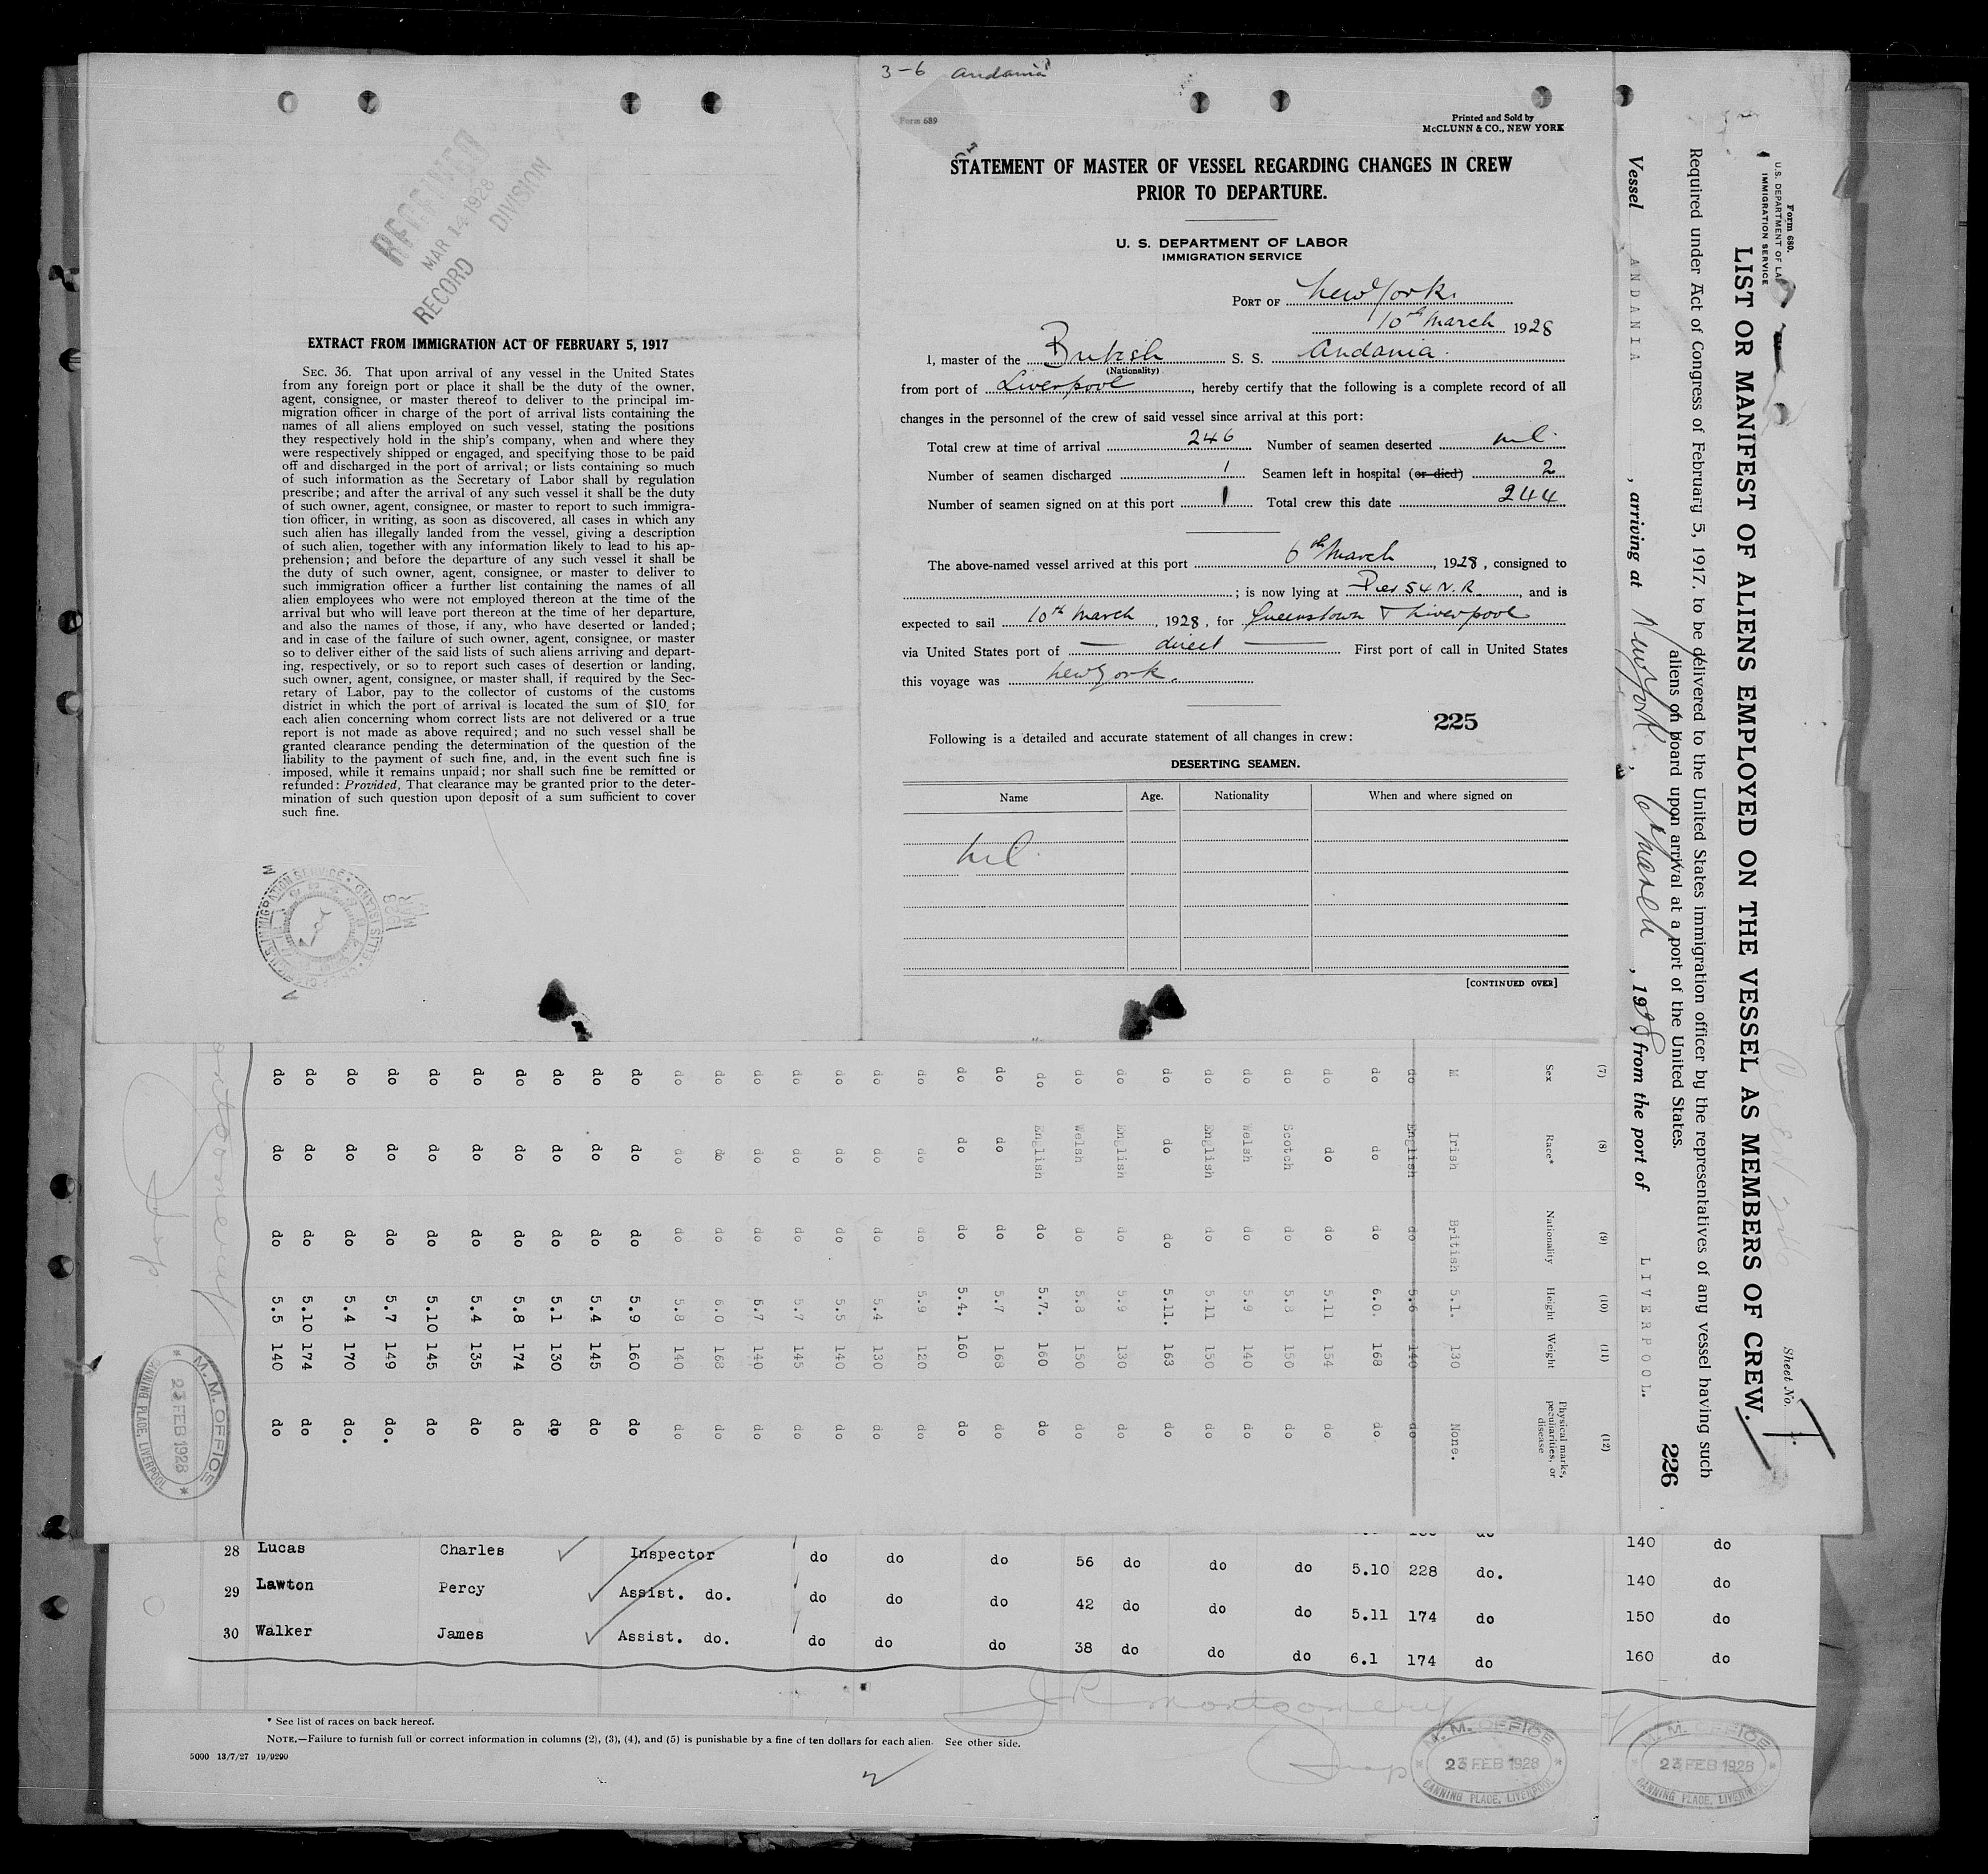 3-6 Andania
Form 689
Printed and Sold by
McCLUNN & CO., NEW YORK
STATEMENT OF MASTER OF VESSEL REGARDING CHANGES IN CREW
PRIOR TO DEPARTURE.
U. S. DEPARTMENT OF LABOR
IMMIGRATION SERVICE
PORT OF New York.
10th March 1928
I, master of the British S. S. Andania.
(Nationality)
from port of Liverpool, hereby certify that the following is a complete record of all
changes in the personnel of the crew of said vessel since arrival at this port:
Total crew at time of arrival 246 Number of seamen deserted nil.
Number of seamen discharged 1 Seamen left in hospital (or died) 2
Number of seamen signed on at this port 1 Total crew this date 244
The above-named vessel arrived at this port 6th March, 1928, consigned to
; is now lying at Pier 54 N.R., and is
expected to sail 10th March, 1928, for Queenstown & Liverpool
via United States port of — direct — First port of call in United States
this voyage was New York.
225
Following is a detailed and accurate statement of all changes in crew:
DESERTING SEAMEN.
Name Age. Nationality When and where signed on
nil.
[CONTINUED OVER]
MAR 14 1928
RECORD DIVISION
EXTRACT FROM IMMIGRATION ACT OF FEBRUARY 5, 1917
SEC. 36. That upon arrival of any vessel in the United States
from any foreign port or place it shall be the duty of the owner,
agent, consignee, or master thereof to deliver to the principal im-
migration officer in charge of the port of arrival lists containing the
names of all aliens employed on such vessel, stating the positions
they respectively hold in the ship's company, when and where they
were respectively shipped or engaged, and specifying those to be paid
off and discharged in the port of arrival; or lists containing so much
of such information as the Secretary of Labor shall by regulation
prescribe; and after the arrival of any such vessel it shall be the duty
of such owner, agent, consignee, or master to report to such immigra-
tion officer, in writing, as soon as discovered, all cases in which any
such alien has illegally landed from the vessel, giving a description
of such alien, together with any information likely to lead to his ap-
prehension; and before the departure of any such vessel it shall be
the duty of such owner, agent, consignee, or master to deliver to
such immigration officer a further list containing the names of all
alien employees who were not employed thereon at the time of the
arrival but who will leave port thereon at the time of her departure,
and also the names of those, if any, who have deserted or landed;
and in case of the failure of such owner, agent, consignee, or master
so to deliver either of the said lists of such aliens arriving and depart-
ing, respectively, or so to report such cases of desertion or landing,
such owner, agent, consignee, or master shall, if required by the Sec-
retary of Labor, pay to the collector of customs of the customs
district in which the port of arrival is located the sum of $10 for
each alien concerning whom correct lists are not delivered or a true
report is not made as above required; and no such vessel shall be
granted clearance pending the determination of the question of the
liability to the payment of such fine, and, in the event such fine is
imposed, while it remains unpaid; nor shall such fine be remitted or
refunded: Provided, That clearance may be granted prior to the deter-
mination of such question upon deposit of a sum sufficient to cover
such fine.
Form 680.
U.S. DEPARTMENT OF LA
IMMIGRATION SERVICE
Sheet No. 7.
LIST OR MANIFEST OF ALIENS EMPLOYED ON THE VESSEL AS MEMBERS OF CREW.
Required under Act of Congress of February 5, 1917, to be delivered to the United States immigration officer by the representatives of any vessel having such
aliens on board upon arrival at a port of the United States.
226
Vessel ANDANIA, arriving at New York, 6th March, 1928, from the port of LIVERPOOL.
(7) (8) (9) (10) (11) (12)
Sex Race* Nationality Height Weight Physical marks, peculiarities, or disease
M Irish British 5.1. 130 None.
do English do 5.6 140 do
do do do 6.0. 168 do
do do do 5.11 154 do
do Scotch do 5.8 150 do
do Welsh do 5.9 140 do
do English do 5.11 150 do
do do do 5.11. 163 do
do English do 5.9 130 do
do Welsh do 5.8 150 do
do English do 5.7. 160 do
do do do 5.7 168 do
do do do 5.4. 160 do
do do do 5.9 120 do
do do do 5.4 130 do
do do do 5.5 140 do
do do do 5.7 145 do
do do do 5.7 140 do
do do do 6.0 168 do
do do do 5.8 140 do
do do do 5.9 160 do
do do do 5.4 145 do
do do do 5.1 130 do
do do do 5.8 174 do
do do do 5.4 135 do
do do do 5.10 145 do
do do do 5.7 149 do.
do do do 5.4 170 do.
do do do 5.10 174 do
do do do 5.5 140 do
M. M. OFFICE
23 FEB 1928
CANNING PLACE, LIVERPOOL
28 Lucas Charles Inspector do do do 56 do do do 5.10 228 do.
29 Lawton Percy Assist. do. do do do 42 do do do 5.11 174 do
30 Walker James Assist. do. do do do 38 do do do 6.1 174 do
140 do
140 do
150 do
160 do
J R Montgomery
* See list of races on back hereof.
NOTE.—Failure to furnish full or correct information in columns (2), (3), (4), and (5) is punishable by a fine of ten dollars for each alien. See other side.
5000 13/7/27 19/9290
M. M. OFFICE
23 FEB 1928
CANNING PLACE, LIVERPOOL
M. M. OFFICE
23 FEB 1928
CANNING PLACE, LIVERPOOL